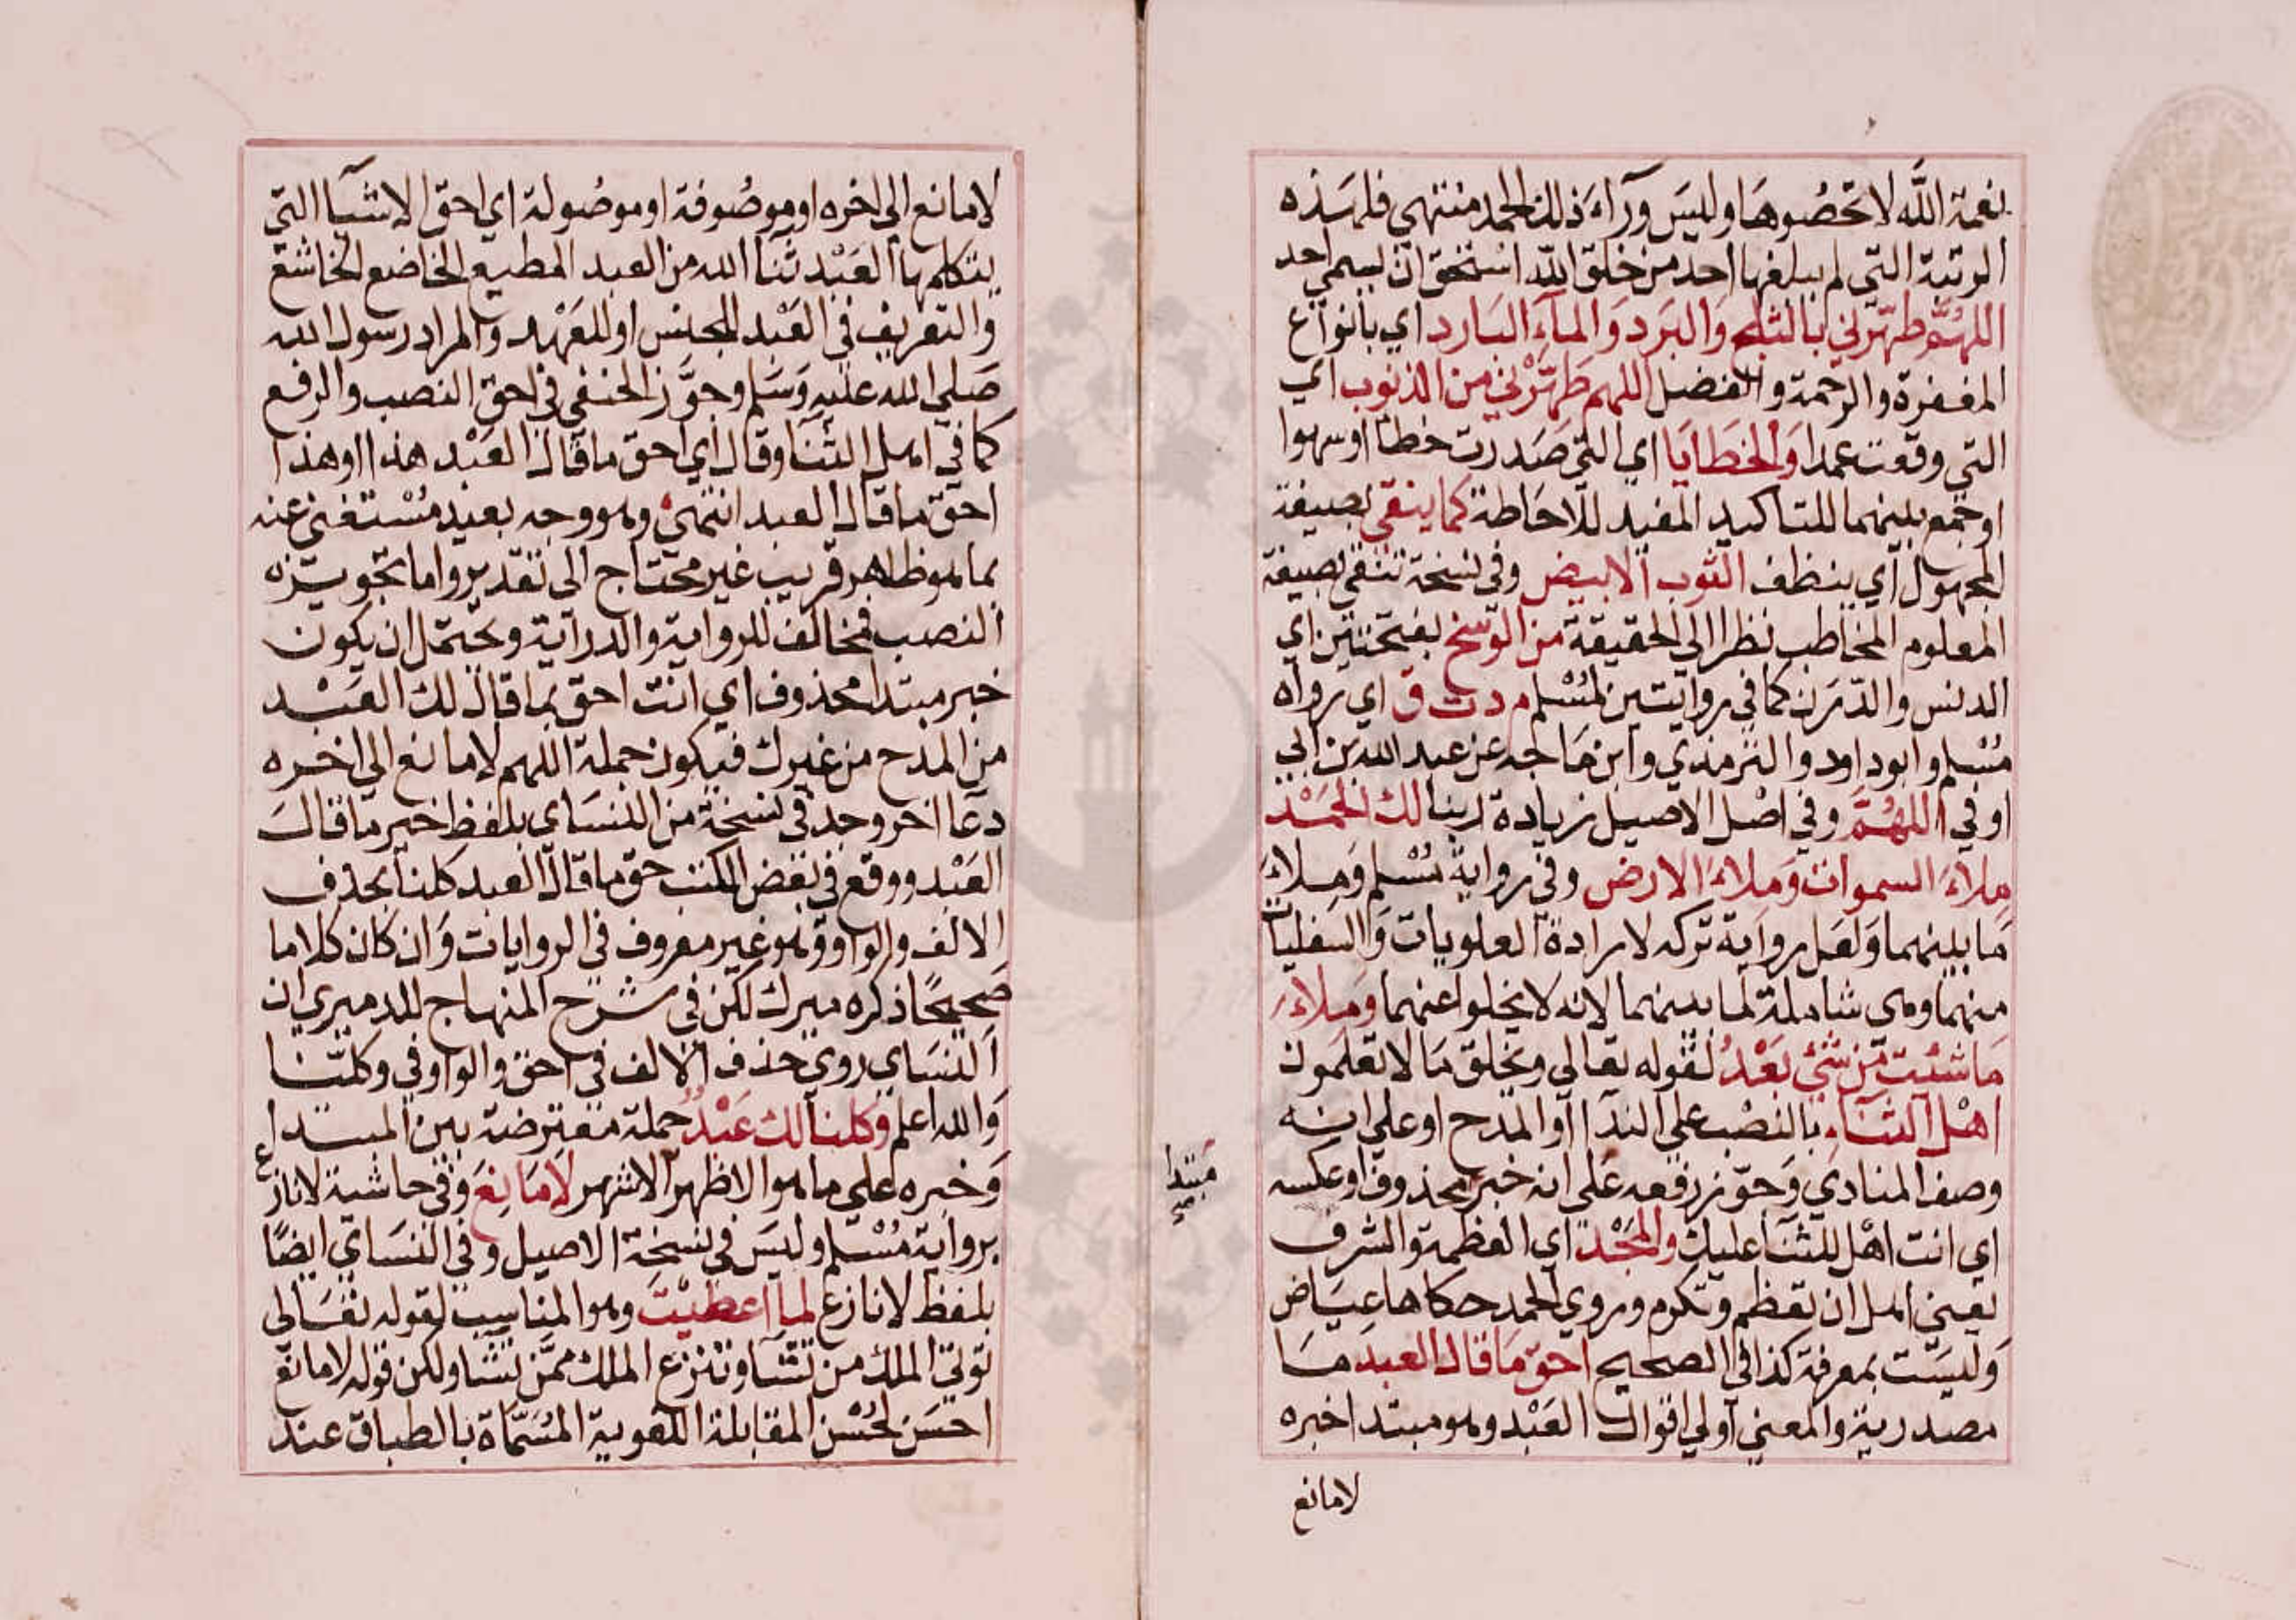 نعمة اللَّه لا تحْصُوهَا وليسَ ورآءَ ذلك الحمد منتهى فلهَذه
الرتبة التي لم يبلغها احد من خلق اللّه استحق ان يسمى احمد
اللهُمَّ طهّرني بالثلج وَالبَرد وَالمآء البَارد اي بانواع
المغفرة والرحمة والفضل اللهم طَهّرْني من الذنوب اي
التي وقعت عمدا وَالخطَايَا اي التي صَدرت خطأ او سهوا
او جمع بينهما للتاكيد المفيد للاحَاطة كما ينقى بصيغة
المجهول اي ينظف الثوب الابيض وفي نسخة تنقى بصيغة
المعلوم المخاطب نظرا الى الحقيقة من الوسَخ بفتحتين اي
الدنس والدّرَن كما في روايتين لمُسْلم م د ت ق اي رواه
مُسْلم وابو داود والترمذي وابن مَاجه عن عبد الله بن ابي
اوفي اللهُمَّ وفي اصْل الاصيل زيادة ربنا لك الحَمْد
مِلاءَ السموات وَملاءَ الارض وفي رواية مُسْلم وَمِلاءَ
مَا بينهما وَلعَل رواية تركه لارادة العلويات وَالسفليات
منهما وهى شاملة لما بينهما لانه لا يخلوا عنهما وَمِلاءَ
مَا شئت مّن شئ بَعْدُ لقوله تعالى ويخلق مَا لا تعلمون
اهْل الثنَاءِ بالنصْب على الندآ او المدح او على انه
وصف المنادي وَجوّز رفعه عَلى انه خبر محذوف او عكسه
مبتدا
صح
اي انت اهْل للثنَآ عليك والمَجْد اي العظمة والشرف
يعني اهل ان تعظم وتكرم وروي الحمد حكاها عيَاض
وَليسَت بمعرفة كذا في الصحيح احق مَا قال العبد مَا
مصدرية والمعنى اولى اقوال العَبْد وهو مبتدا خبره
لا مانع
لا مانع الى اخره او موصُوفة او موصُولة اي احق الاشيَآ التي
يتكلم بها العَبْد ثنآ الله من العبد المطيع الخاضع الخاشع
والتعريف في العَبْد للجنس او للعَهْد والمراد رسول الله
صَلى الله عليهِ وَسَلم وجوَّز الحنفي في احق النصب والرفع
كما في اهل الثنَآ وقال اي احق ما قال العَبْد هذا او هذا
احق ما قال العبد انتهى وهو وجه بعيد مُسْتغنى عنه
بما هو ظاهر قريب غير محتاج الى تقدير واما تجويزه
النصب فمخالف للرواية والدراية ويحتمل ان يكون
خبر مبتدا محذوف اي انت احق بما قال لك العَبْد
من المدح من غيرك فيكون جملة اللهم لا مانع الى اخره
دعآ اخر وجد في نسخة من النسَاي بلفظ خير ما قال
العَبْد ووقع في بَعْض الكتب حق ما قال العبد كلنا بحذف
الالف والواو وهو غير معروف في الروايات وَان كان كلاما
صَحيحًا ذكره ميرك لكن في شرح المنهاج للدميري ان
النسَاي روى حذف الالف في احق والواو في وكلنا
وَالله اعلم وَكلنا لك عَبْدٌ جملة معترضة بين المبتدا
وَخبره على ما هو الاظهر الاشهر لَا مَانِعَ وَفي حاشية لا نازع
برواية مُسْلم وليسَ في نسخة الاصيل وفي النسَاي ايضًا
بلفظ لا نازع لما اعطيْتَ وهو المناسِب لقوله تعَالى
تؤتي الملك من تشَآ وتنزع الملك ممَّن تشَآ ولكن قوله لا مانع
احسَن لحُسْن المقابلة اللغوية المُسَمّاة بالطباق عند